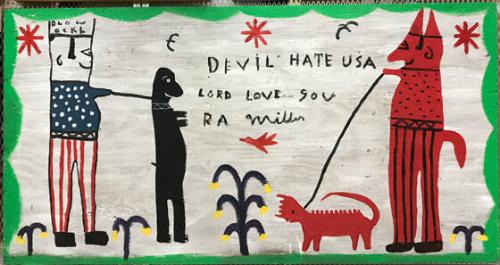 DEVIL HATE USA
LORD LOVE YOU
RA Miller